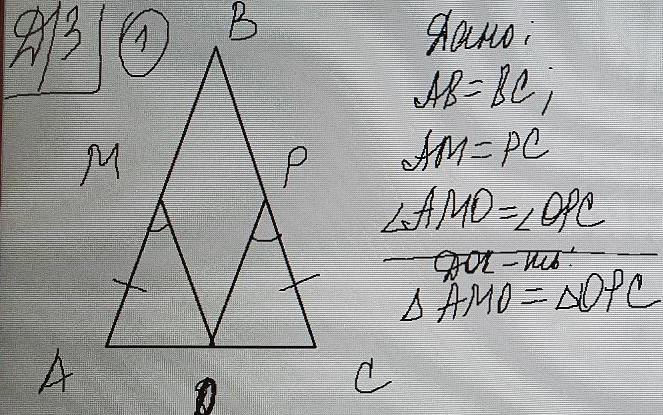 Д/З ①
B
Дано:
AB=BC;
M P
AM=PC
∠AMO=∠OPC
Док-ть:
△AMO=△OPC
A O C